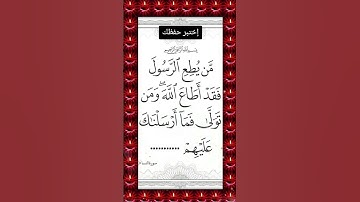 إختبر حفظك
بسم الله الرحمن الرحيم
مَّن يُطِعِ ٱلرَّسُولَ
فَقَدْ أَطَاعَ ٱللَّهَ ۖ وَمَن
تَوَلَّىٰ فَمَآ أَرْسَلْنَـٰكَ
عَلَيْهِمْ ...........